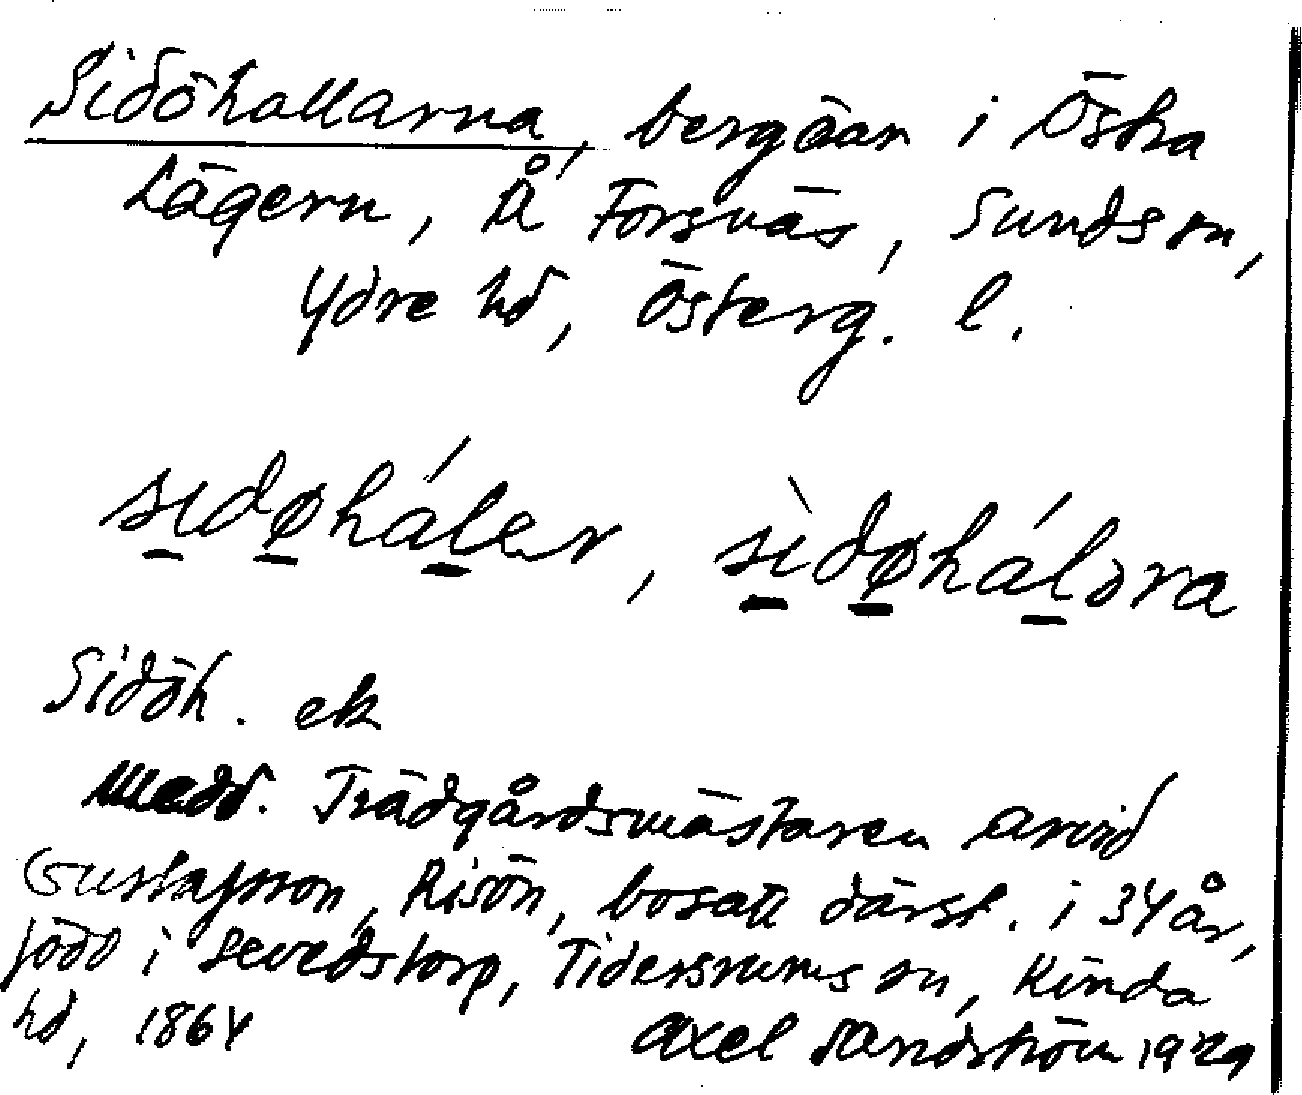 Sidöhallarna, bergöar i Östra
Lägern, Å Forsnäs, Sunds sn,
Ydre hd, Österg. l.
sıdøháler, sìdøháləra
Sidöh. ek
Medd. Trädgårdsmästaren Arvid
Gustafsson, Risön, bosatt därst. i 34 år,
född i Sevedstorp, Tidersrums sn, Kinda
hd, 1864
Axel Sandström 1929